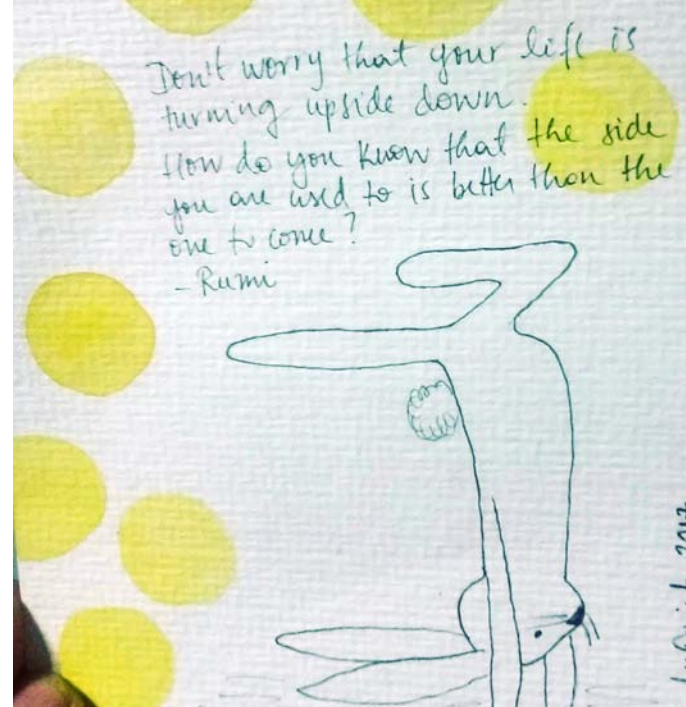 Don't worry that your life is
turning upside down.
How do you know that the side
you are used to is better than the
one to come?
- Rumi
2017